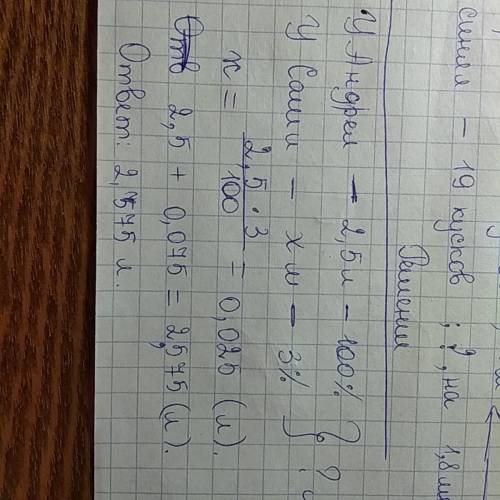 синия - 19 кусков ; ? , на 1,8 м
Решение
У Андрея - 2,5 м - 100% } ?
У Саши - x м - 3%
x = 2,5 · 3 / 100 = 0,025 (м).
2,5 + 0,075 = 2,575 (м).
Ответ: 2,575 м.